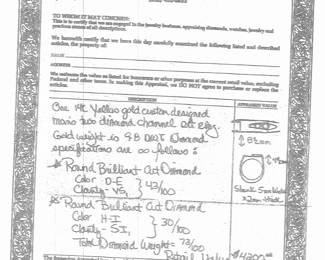 TO WHOM IT MAY CONCERN:
This is to certify that we are engaged in the jewelry business, appraising diamonds, watches, jewelry and precious stones of all descriptions.
We herewith certify that we have this day carefully examined the following listed and described articles, the property of:
NAME
ADDRESS
We estimate the value as listed for insurance or other purposes at the current retail value, excluding Federal and other taxes. In making this Appraisal, we DO NOT agree to purchase or replace the articles.
DESCRIPTION
APPRAISED VALUE
One 14K Yellow gold custom designed
mans two diamond channel set ring.
Gold weight is 9.8 DWT Diamond
specifications are as follows:
Round Brilliant Cut Diamond
Color D-E
Clarity- VS1
43/100
Round Brilliant Cut Diamond
Color H-I
Clarity- SI1
30/100
Total Diamond Weight= 73/100
Shank 5mm Wide
x 2mm thick
Retail Value
$4200.00